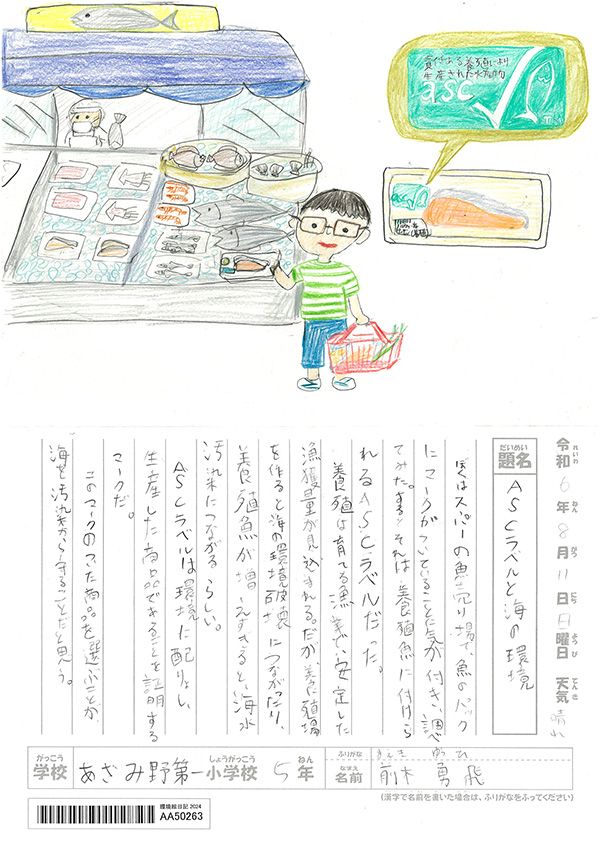 責任ある養殖により
生産された水産物
asc
asc
令和6年8月11日日曜日 天気 晴れ
れいわ ねん がつ にち ようび てんき
だいめい
題名
ASCラベルと海の環境
ぼくはスーパーの魚売り場で、魚のパック
にマークがついていることに気が付き、調べ
てみた。するとそれは養殖魚に付けら
れるASCラベルだった。
養殖は育てる漁業で、安定した
漁獲量が見込まれる。だが、養殖場
を作ると海の環境破壊につながったり、
養殖魚が増えすぎると、海水
汚染につながるらしい。
ASCラベルは環境に配りょし、
生産した商品であることを証明する
マークだ。
このマークのついた商品を選ぶことが、
海を汚染から守ることだと思う。
がっこう しょうがっこう ねん ふりがな まえき ゆうひ
学校 あざみ野第一小学校 5年 なまえ 名前 前木 勇飛
(漢字で名前を書いた場合は、ふりがなをふってください)
環境絵日記2024
AA50263